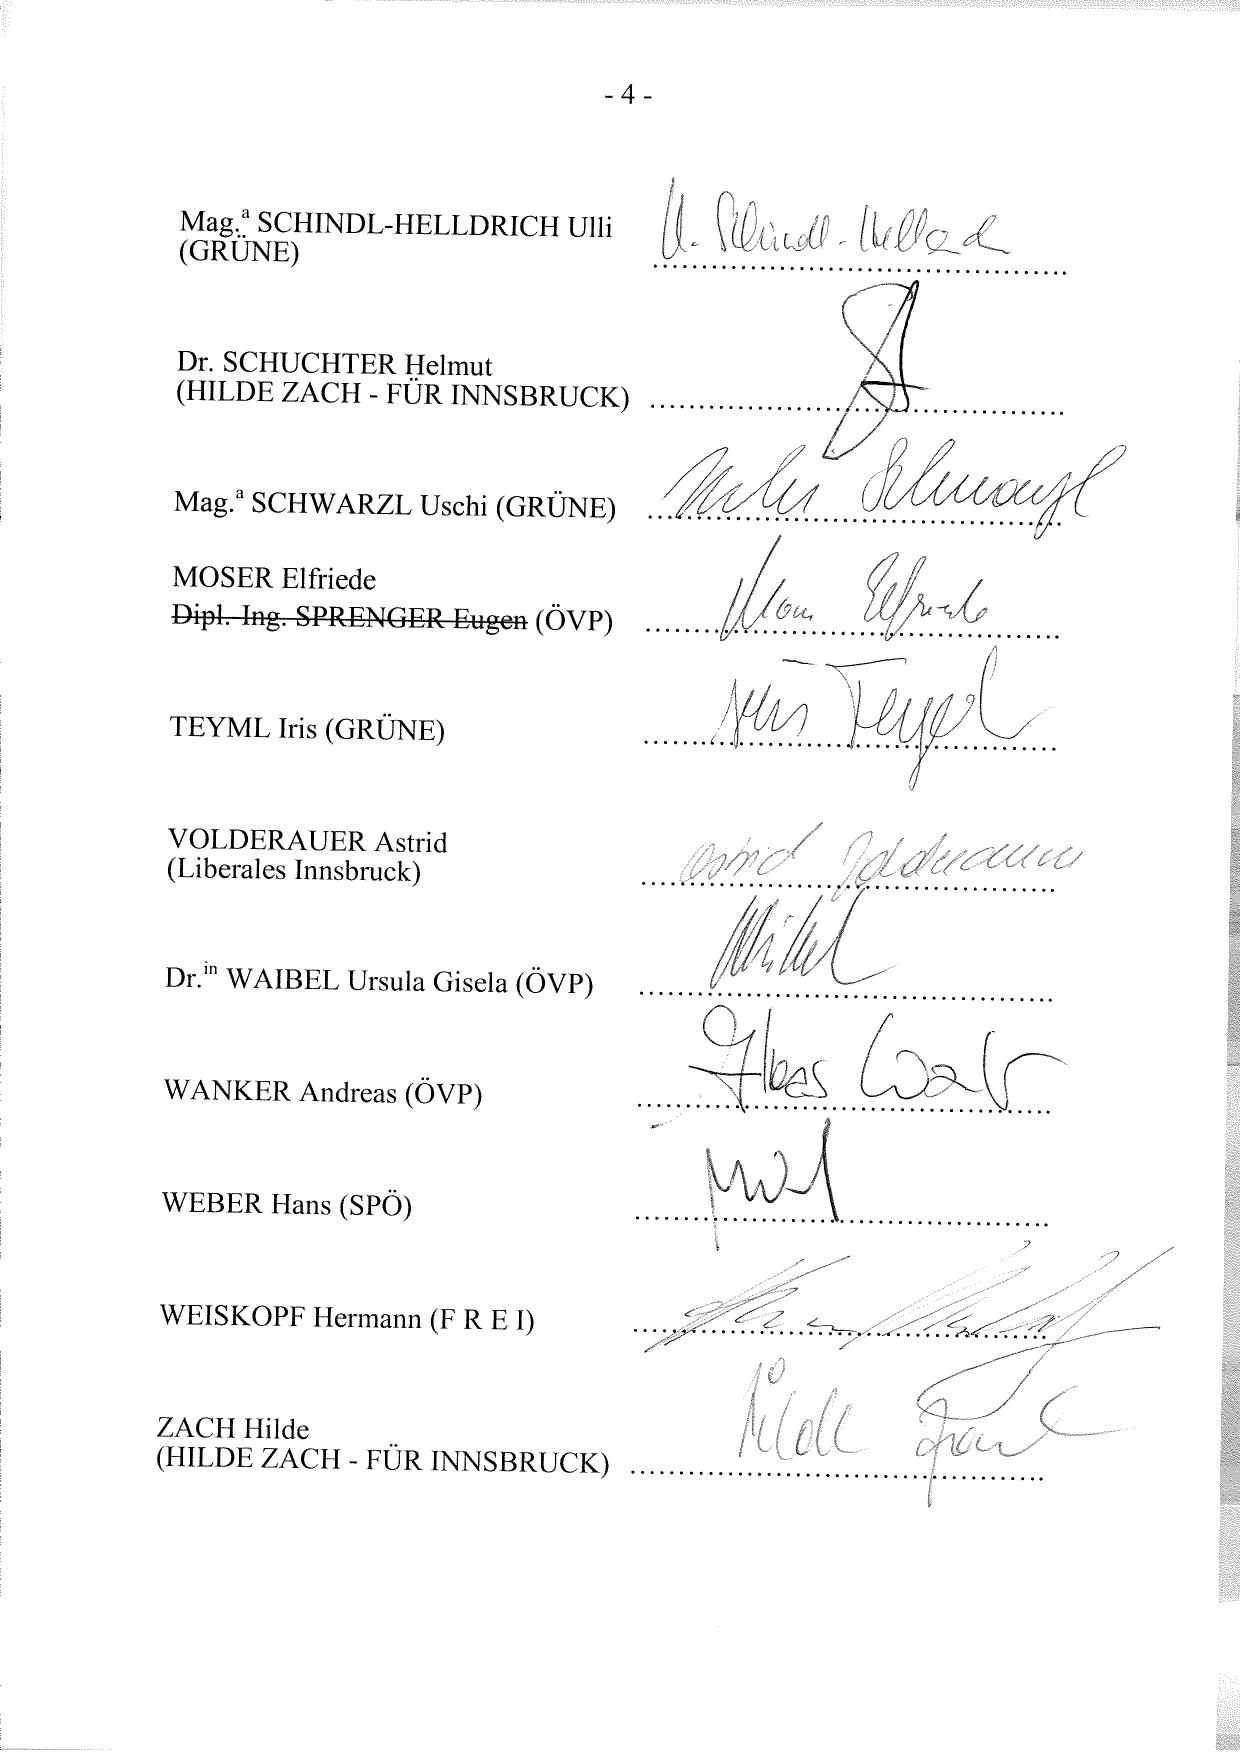 - 4 -
Mag.ª SCHINDL-HELLDRICH Ulli
(GRÜNE)
U. Schindl-Helldrich
Dr. SCHUCHTER Helmut
(HILDE ZACH - FÜR INNSBRUCK) ..........
Mag.ª SCHWARZL Uschi (GRÜNE) ..........
Uschi Schwarzl
MOSER Elfriede
Dipl.-Ing. SPRENGER Eugen (ÖVP) ..........
Moser Elfriede
TEYML Iris (GRÜNE) ..........
Iris Teyml
VOLDERAUER Astrid
(Liberales Innsbruck) ..........
Astrid Volderauer
Dr.in WAIBEL Ursula Gisela (ÖVP) ..........
WANKER Andreas (ÖVP) ..........
WEBER Hans (SPÖ) ..........
WEISKOPF Hermann (F R E I) ..........
ZACH Hilde
(HILDE ZACH - FÜR INNSBRUCK) ..........
Hilde Zach